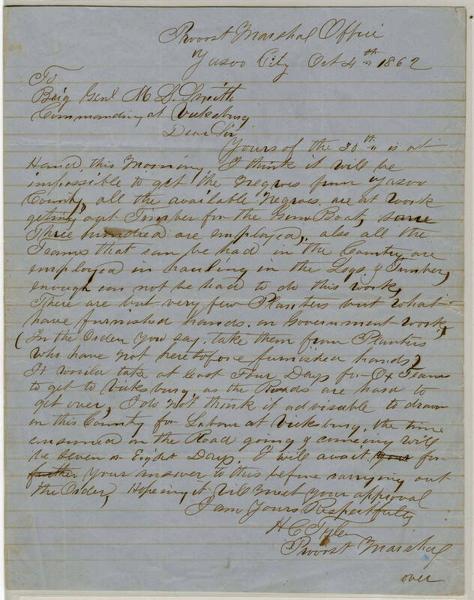 Provost Marshal Office
Yazoo City Oct 4th 1862
To
Brig Genl M L Smith
Commanding at Vicksburg
Dear Sir,
Yours of the 30th is at
Hand, this Morning, I think it will be
impossible to get the Negroes from Yazoo
County, all the available Negroes are at work
getting out Timber for the Gun Boat, some
Three hundred are employed, also all the
Teams that can be had in the County are
employed in hauling in the Logs & Timber,
enough can not be had to do this work,
There are but very few Planters but what
have furnished hands on Government work,
(In the Order You say, take them from Planters
who have not heretofore furnished hands)
It would take at least Four Days for Ox Teams
to get to Vicksburg, as the Roads are hard to
get over, I do not think it advisable to draw
on this County for Labour at Vicksburg, the time
consumed in the Road going & comeing will
be Seven or Eight Days, I will await your for
further Your answer to this before carrying out
the Order, Hopeing it will meet your approval
I am Yours Respectfully
H C Tyler
Provost Marshal
over